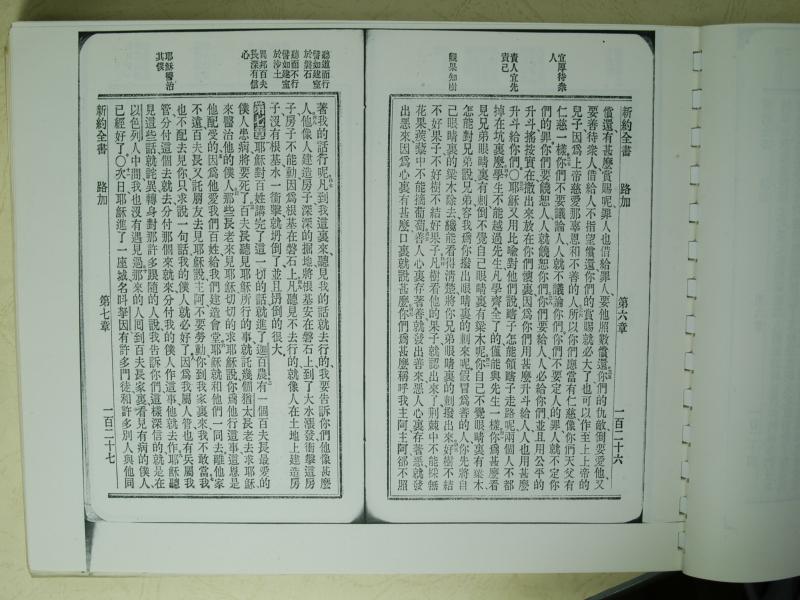 宜厚待衆
人
責人宜先
責己
觀果知樹
新約全書 路加 第六章 一百二十六
償還有甚麼賞賜呢罪人也借給罪人要他照數償還你們的仇敵倒要愛他又
要善待衆人借給人不指望償還你們的賞賜就必大了也可以作至上上帝的
兒子因爲上帝慈愛那辜恩和不善的人所以你們應當有仁慈像你們天父有
仁慈一樣你們不要議論人人就不議論你們你們不要定人的罪人就不定你
們的罪你們要饒恕人人就饒恕你們你們要給人人必給你們並且用公平的
升斗搖按實在撒出來放在你們懷裏因爲你們用甚麼升斗給人人也用甚麼
升斗給你們〇耶穌又用比喻對他們說瞎子怎能領瞎子走路呢兩個人不都
掉在坑裏麼學生不能越過先生凡學齊全了的僅能與先生一樣你爲甚麼看
見兄弟眼睛裏有刺倒不覺自己眼睛裏有梁木呢你自己不覺眼睛裏有梁木
怎能對兄弟說兄弟容我爲你撥出眼睛裏的刺來呢假冒爲善的人你先將自
己眼睛裏的梁木除去纔能看得清楚將你兄弟眼睛裏的刺撥出來好樹不結
不好果子不好樹不結好果子凡樹看他的果子就認出來了荊棘中不能採無
花果蒺藜中不能摘葡萄善人心裏存着善就發出善來惡人心裏存著惡就發
出惡來因爲心裏有甚麼口裏就說甚麼你們爲甚麼稱呼我主阿主阿卻不照
聽道而行
譬如建室
於磐石
聽而不行
譬如建室
於沙土
異邦百夫
長深有信
心
耶穌醫治
其僕
著我的話行呢凡到我這裏來聽見我的話就去行的我要告訴你們他像甚麼
人他像人建造房子深深的掘地將根基安在磐石上到了大水漲發衝擊這房
子房子不能動因爲根基在磐石上凡聽見不去行的就像人在土地上建造房
子沒有根基水一衝擊就坍倒了並且坍倒的很大
第七章 耶穌對百姓講完了這一切的話就進了迦百農有一個百夫長最愛的
僕人患病將要死了百夫長聽見耶穌所行的事就託幾個猶太長老去求耶穌
來醫治他的僕人那些長老來見耶穌切切的求耶穌說你爲他行這事這恩是
他配受的因爲他愛我們百姓給我們建造會堂耶穌就和他們一同去離他家
不遠百夫長又託朋友去見耶穌說主阿不要勞動你到我家裏來我不敢當我
也不配去見你只求說一句話我的僕人就必好了因爲我屬人管也有兵屬我
管分付這個去就去分付那個來就來分付我的僕人作這事他就去作耶穌聽
見這些話就詫異轉身對那許多跟隨的人說我告訴你們這樣深信的就是在
以色列人中間我也沒有遇見過那來的人囘到百夫長家裏看見有病的僕人
已經好了〇次日耶穌進了一座城名叫拏因有許多門徒和許多別人與他同
新約全書 路加 第七章 一百二十七